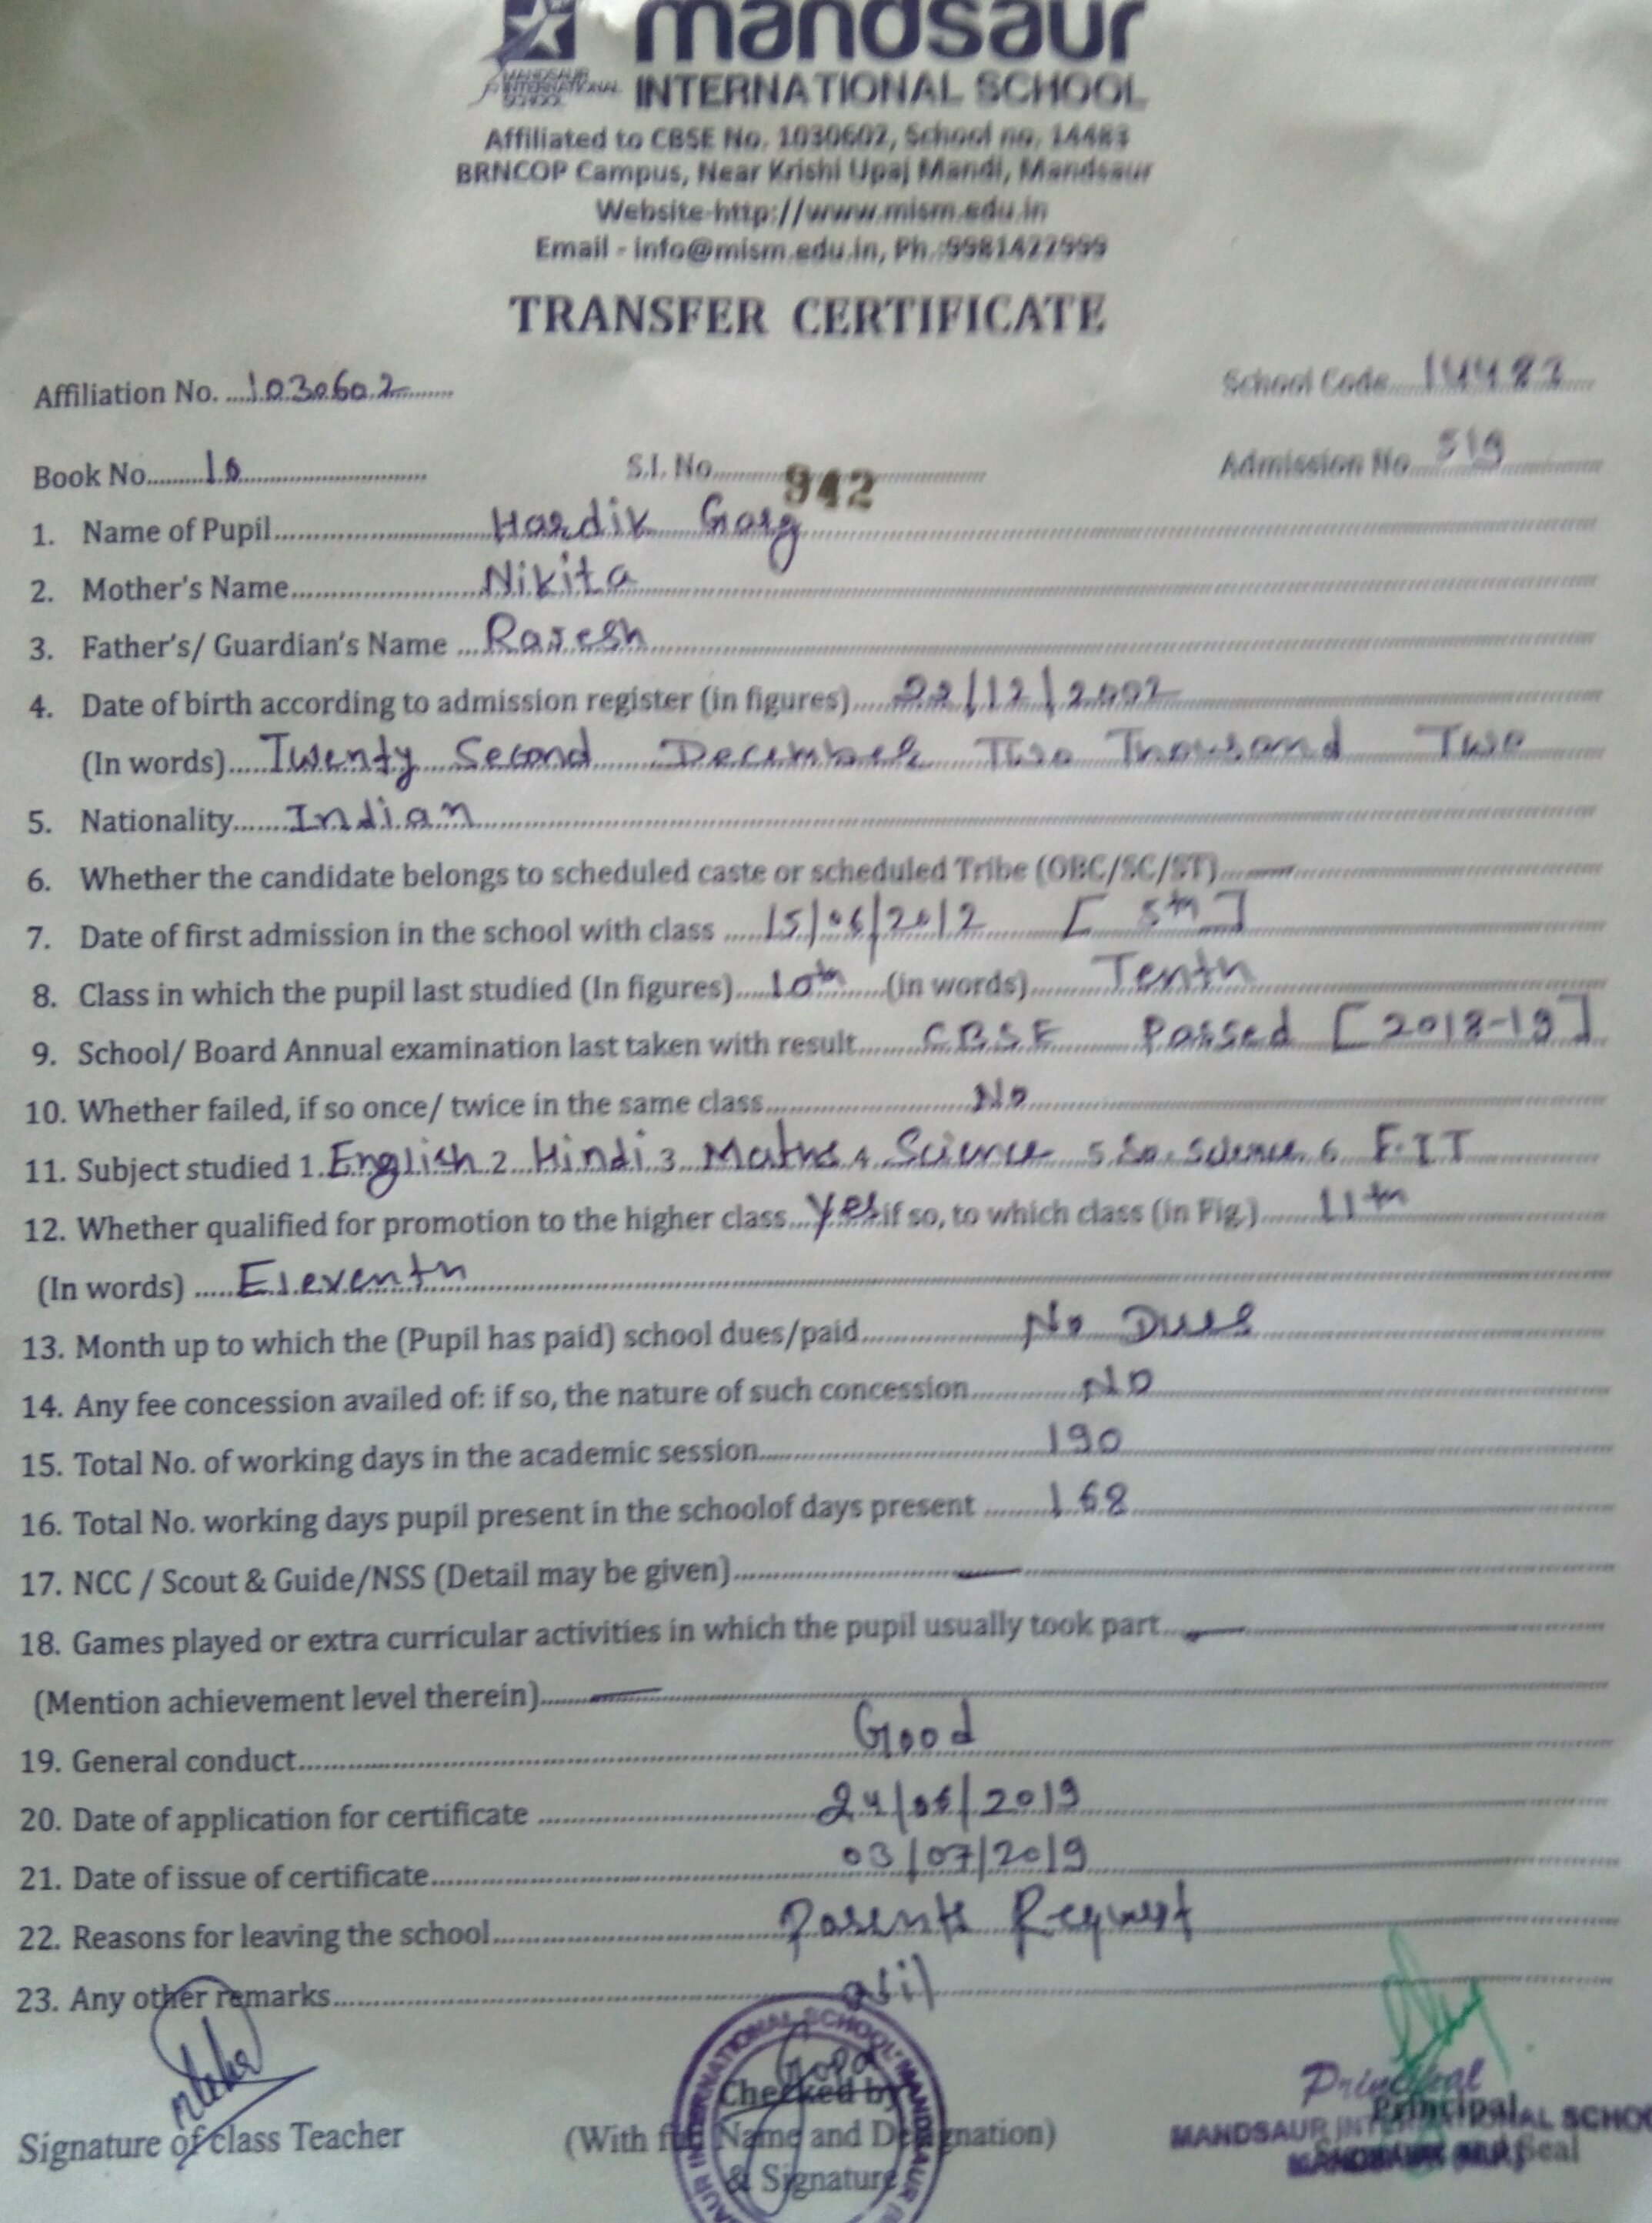 mandsaur
MANDSAUR
INTERNATIONAL
SCHOOL
INTERNATIONAL SCHOOL
Affiliated to CBSE No. 1030602, School no. 14483
BRNCOP Campus, Near Krishi Upaj Mandi, Mandsaur
Website-http://www.mism.edu.in
Email - info@mism.edu.in, Ph.:9981422999
TRANSFER CERTIFICATE
Affiliation No. 1030602 School Code 14483
Book No. 10 S.I. No. 942 Admission No 519
1. Name of Pupil Hardik Garg
2. Mother's Name Nikita
3. Father's/ Guardian's Name Rajesh
4. Date of birth according to admission register (in figures) 22/12/2002
(In words) Twenty Second December Two Thousand Two
5. Nationality Indian
6. Whether the candidate belongs to scheduled caste or scheduled Tribe (OBC/SC/ST) —
7. Date of first admission in the school with class 15/06/2012 [ 5th ]
8. Class in which the pupil last studied (In figures) 10th (in words) Tenth
9. School/ Board Annual examination last taken with result CBSE Passed [2018-19]
10. Whether failed, if so once/ twice in the same class No
11. Subject studied 1. English 2 Hindi 3 Maths 4 Science 5 So. Science 6 F.IT
12. Whether qualified for promotion to the higher class Yes if so, to which class (in Fig.) 11th
(In words) Eleventh
13. Month up to which the (Pupil has paid) school dues/paid No Dues
14. Any fee concession availed of: if so, the nature of such concession NO
15. Total No. of working days in the academic session 190
16. Total No. working days pupil present in the schoolof days present 168
17. NCC / Scout & Guide/NSS (Detail may be given) —
18. Games played or extra curricular activities in which the pupil usually took part —
(Mention achievement level therein) —
19. General conduct Good
20. Date of application for certificate 24/06/2019
21. Date of issue of certificate 03/07/2019
22. Reasons for leaving the school Parents Request
23. Any other remarks Nil
Checked by
Principal
Principal
MANDSAUR INTERNATIONAL SCHOOL
Signature of class Teacher (With full Name and Designation) Signature and Seal
& Signature